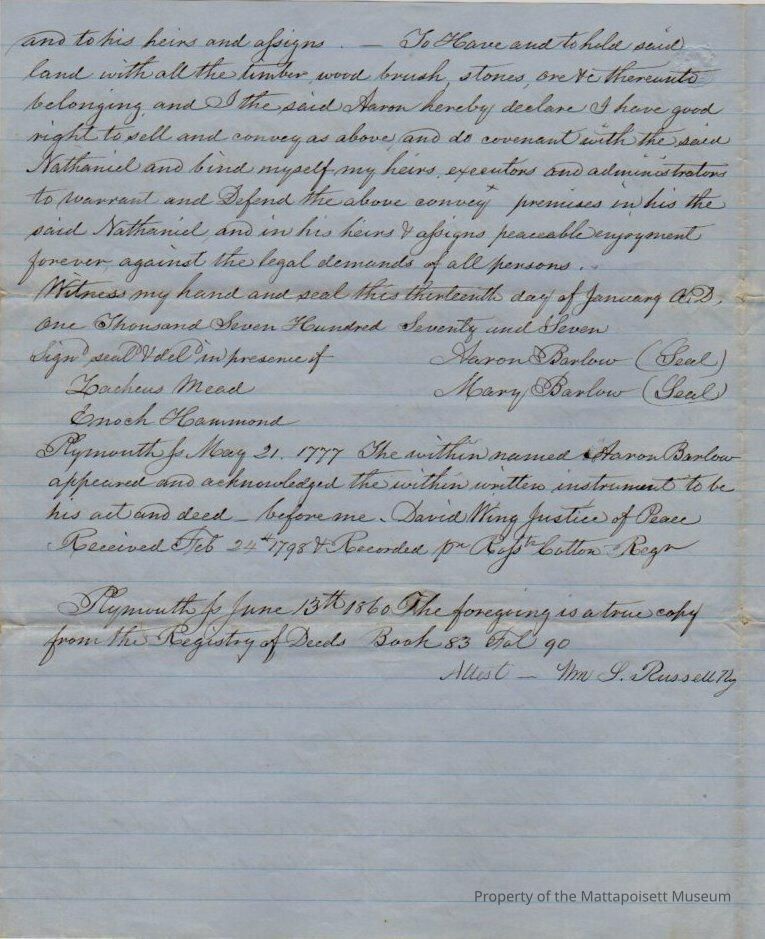 and to his heirs and assigns. — To Have and to hold said
land with all the timber wood brush, stones, ore &c thereunto
belonging and I the said Aaron hereby declare I have good
right to sell and convey as above and do covenant with the said
Nathaniel and bind myself my heirs, executors and administrators
to warrant and Defend the above convey'd premises in his the
said Nathaniel and in his heirs & assigns peaceable enjoyment
forever, against the legal demands of all persons.
Witness my hand and seal this thirteenth day of January A.D.
One Thousand Seven Hundred Seventy and Seven
Sign'd seal'd & del'd in presence of Aaron Barlow (Seal)
Zacheus Mead Mary Barlow (Seal)
Enoch Hammond
Plymouth Ss May 21. 1777 The within named Aaron Barlow
appeared and acknowledged the within written instrument to be
his act and deed – before me. David Wing Justice of Peace
Received Feb 24th 1798 & Recorded pr Cotton Regr
Plymouth Ss June 13th 1860 The foregoing is a true copy
from the Registry of Deeds Book 83 Fol 90
Attest — Wm S. Russell Rg
Property of the Mattapoisett Museum